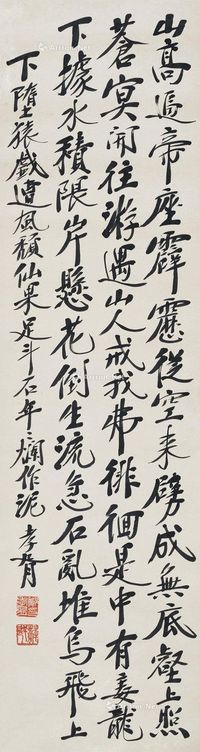 山高逼帝座霹靂從空来劈成無底壑上照
蒼冥開往游遇山人戒我弗徘徊是中有妾龍
下據水積隈岸懸花倒生流急石亂堆鳥飛上
下墮猿戲遭風頹仙果足斗石年年爛作泥 孝胥